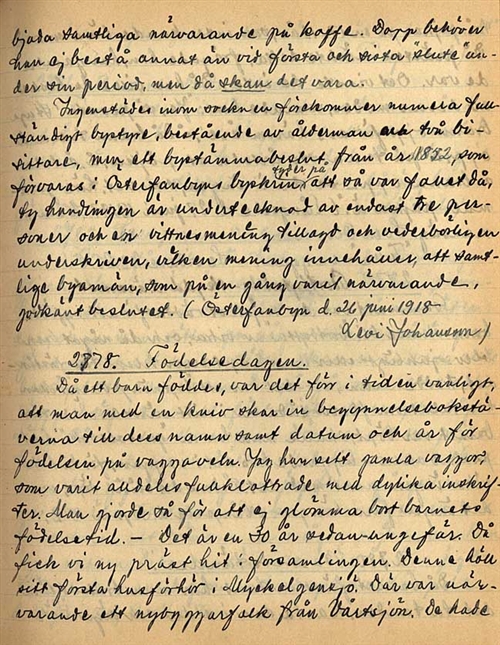 bjuda samtliga närvarande på kaffe. Dopp behöver
han ej bestå annat än vid första och sista "slute" un-
der sin period, men då skan det vara.
Ingenstädes inom socknen förekommer numera full-
ständigt bystyre, bestående av ålderman och två bi-
sittare, men ett bystämmobeslut från år 1852, som
förvaras i Österfanbyns byskrin, tyder på att så var fallet då,
ty handlingen är undertecknad av endast tre per-
soner och en vittnesmening tillagd och vederbörligen
underskriven, vilken mening innehåller, att samt-
lige byamän, som på en gång varit närvarande,
godkänt beslutet. (Österfanbyn d. 26 juni 1918
Levi Johansson)
2878. Födelsedagen.
Då ett barn föddes, var det förr i tiden vanligt,
att man med en kniv skar in begynnelsebokstä-
verna till dess namn samt datum och år för
födelsen på vaggaveln. Jag har sett gamla vaggor,
som varit alldeles fullklottrade med dylika inskrif-
ter. Man gjorde så för att ej glömma bort barnets
födelsetid. - Det är en 50 år sedan ungefär. Då
fick vi ny präst hit i församlingen. Denne höll
sitt första husförhör i Myckelgensjö. Där var när-
varande ett nybyggarfolk från Vårtsjön. De hade